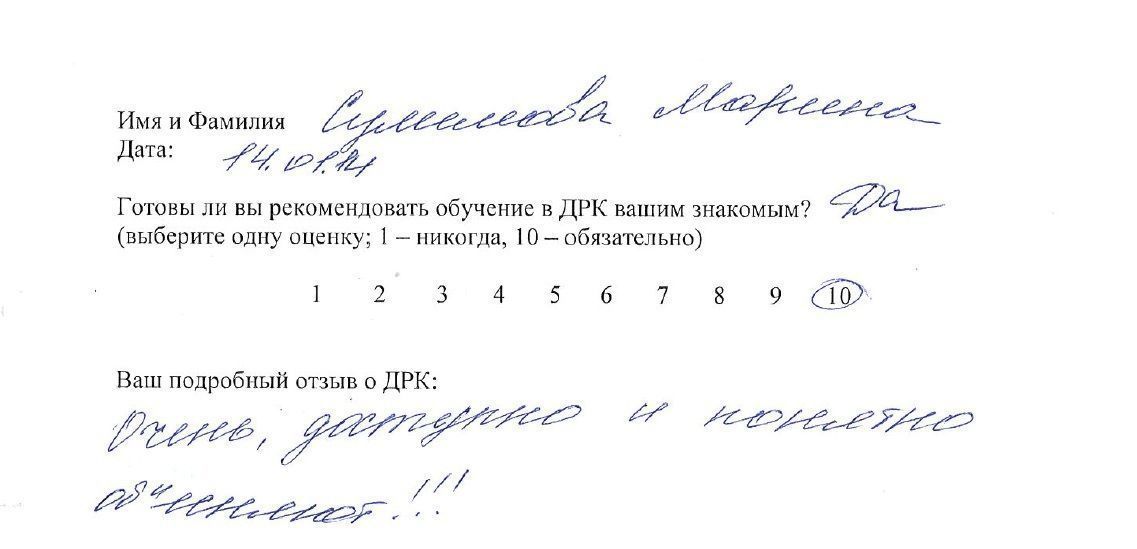 Имя и Фамилия Марина
Дата: 14.01.14
Готовы ли вы рекомендовать обучение в ДРК вашим знакомым? Да
(выберите одну оценку; 1 – никогда, 10 – обязательно)
1 2 3 4 5 6 7 8 9 10
Ваш подробный отзыв о ДРК:
Очень, доступно и понятно
объясняют!!!